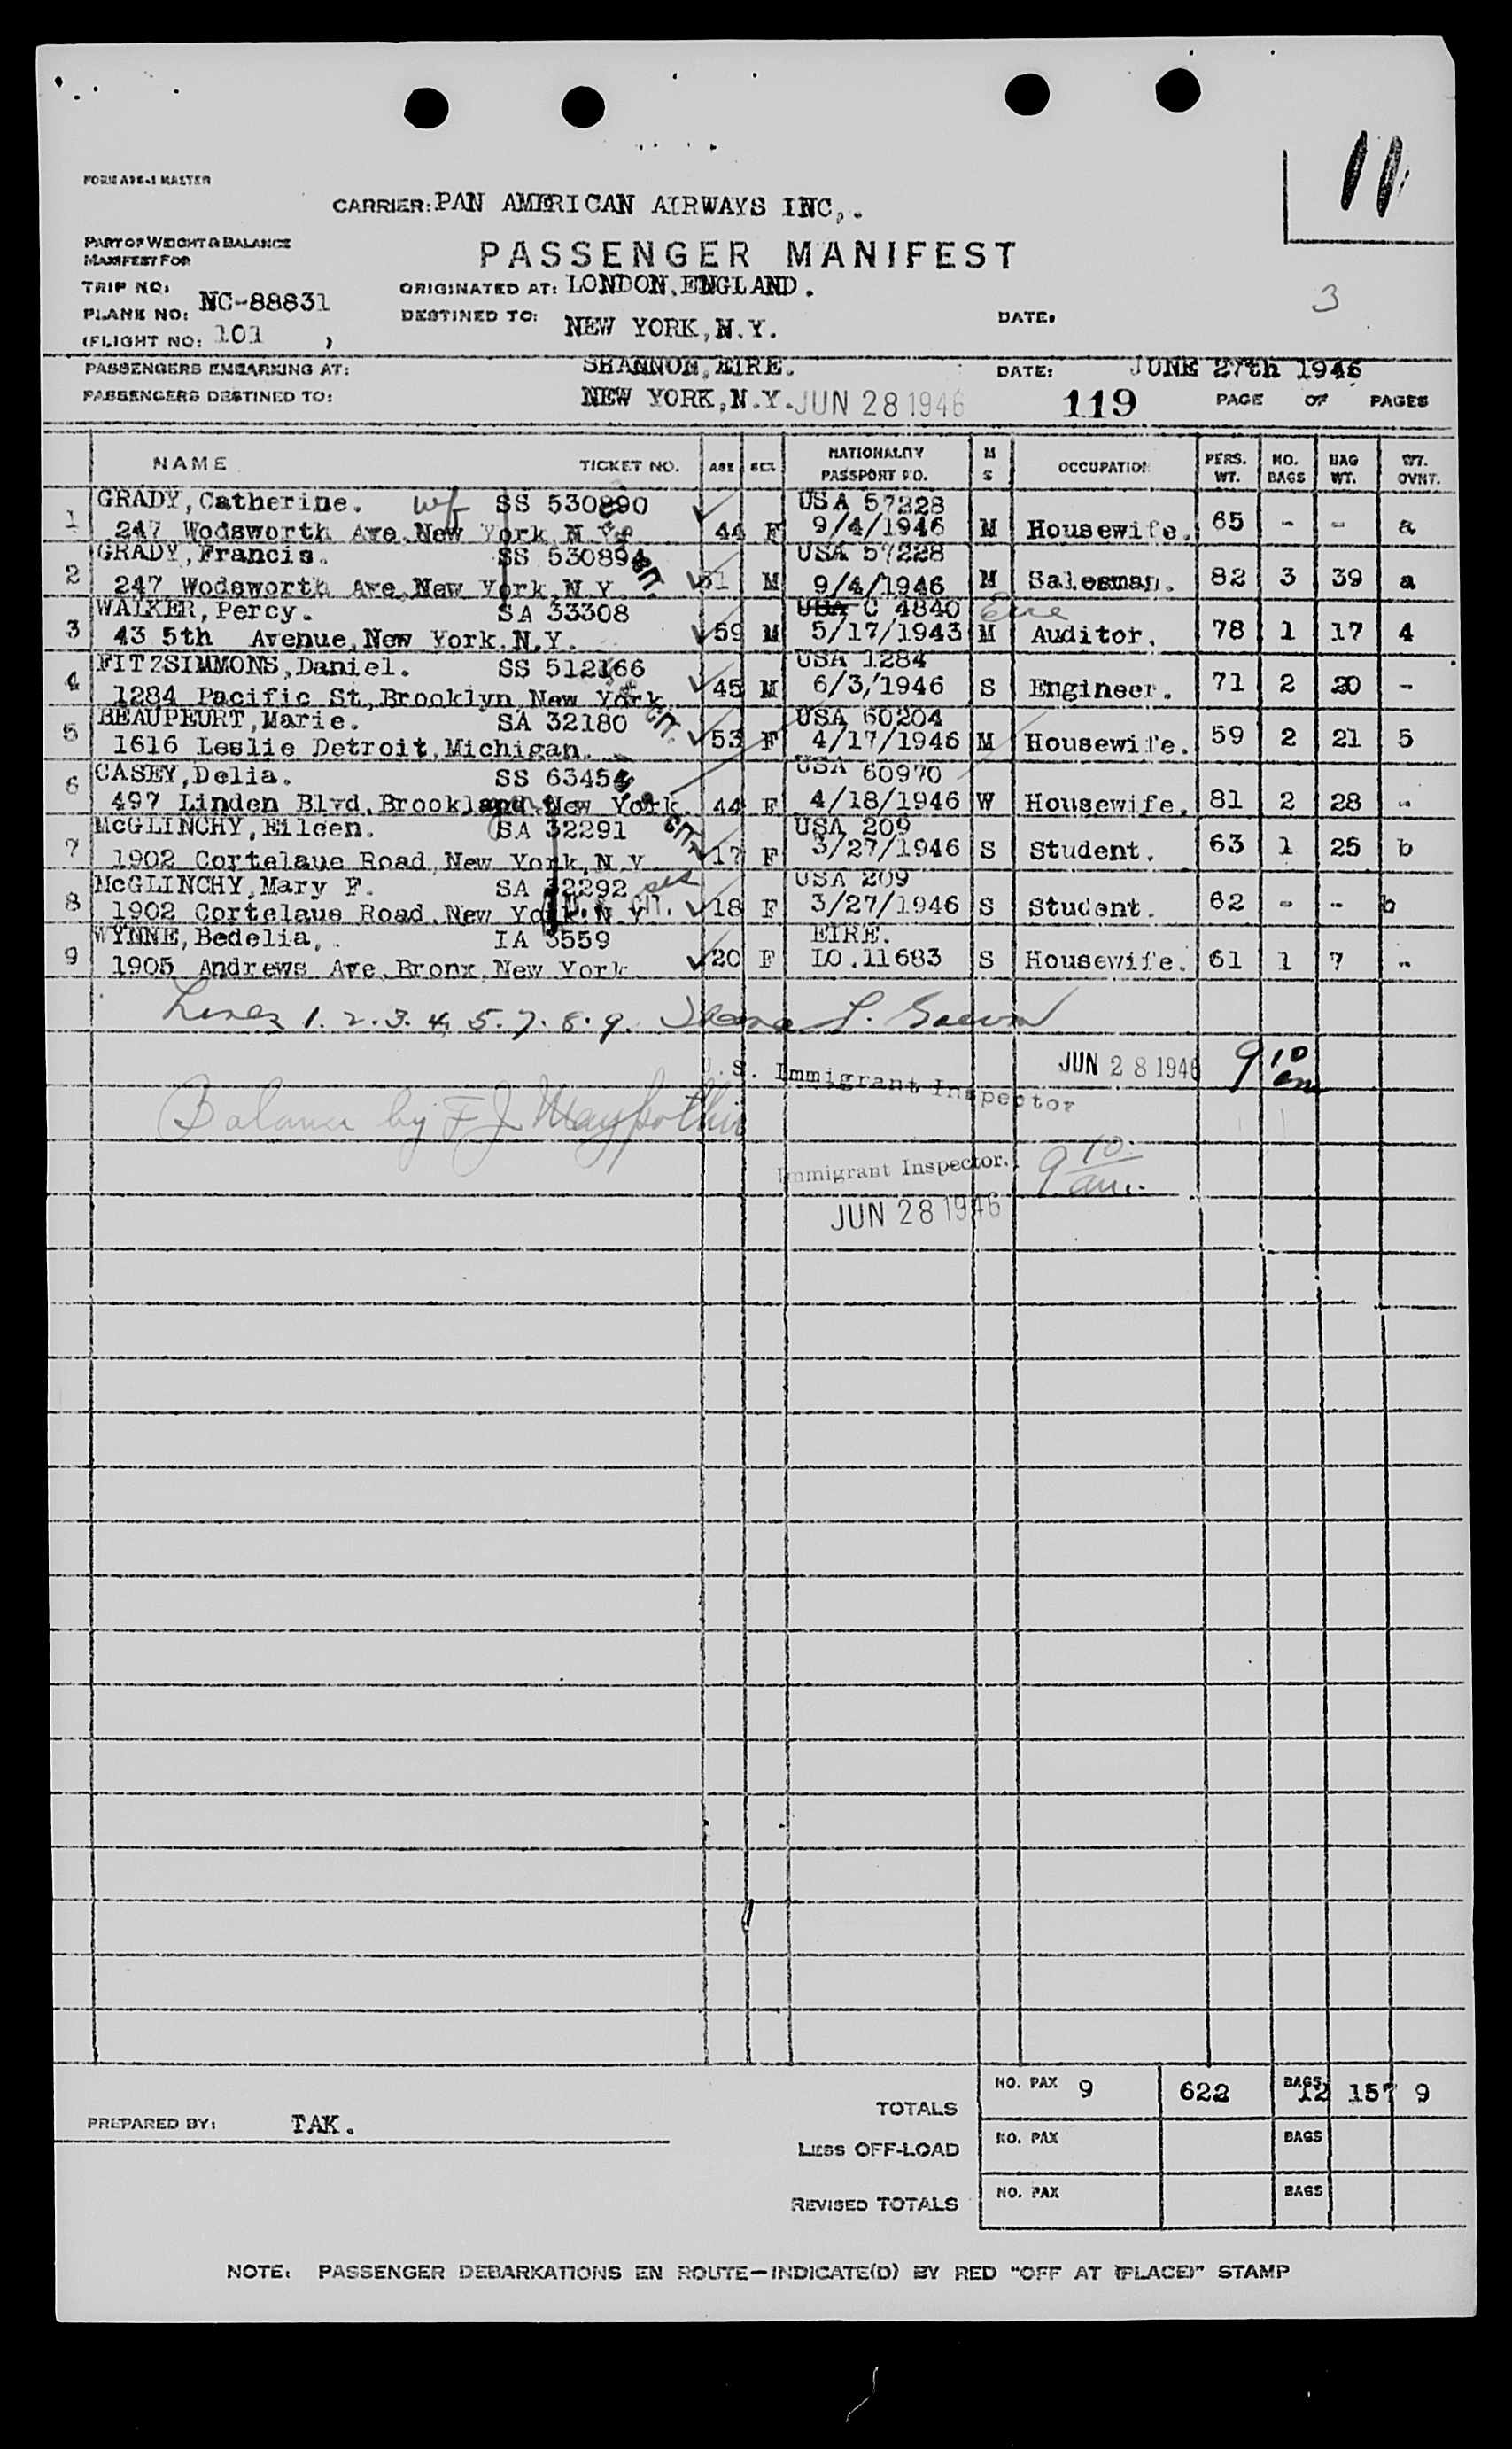 11
FORM ABE-1 MASTER
CARRIER: PAN AMERICAN AIRWAYS INC,.
PART OF WEIGHT & BALANCE
MANIFEST FOR
PASSENGER MANIFEST
TRIP NO:
ORIGINATED AT: LONDON, ENGLAND.
3
PLANE NO: NC-88831
DESTINED TO: NEW YORK, N.Y.
DATE:
(FLIGHT NO: 101 )
PASSENGERS EMBARKING AT: SHANNON, EIRE. DATE: JUNE 27th 1946
PASSENGERS DESTINED TO: NEW YORK, N.Y. JUN 28 1946 119 PAGE OF PAGES
NAME TICKET NO. AGE SEX NATIONALITY PASSPORT NO. M S OCCUPATION PERS. WT. NO. BAGS BAG WT. WT. OVHT.
1 GRADY, Catherine. wf SS 530890 USA 57228
247 Wodsworth Ave, New York, N.Y. 44 F 9/4/1946 M Housewife. 65 - - a
2 GRADY, Francis. SS 530894 USA 57228
247 Wodsworth Ave, New York, N.Y. 51 M 9/4/1946 M Salesman. 82 3 39 a
3 WALKER, Percy. SA 33308 USA C 4840 Eire
43 5th Avenue, New York, N.Y. 59 M 5/17/1943 M Auditor. 78 1 17 4
4 FITZSIMMONS, Daniel. SS 512166 USA 1284
1284 Pacific St, Brooklyn New York. 45 M 6/3/1946 S Engineer. 71 2 20 -
5 BEAUPEURT, Marie. SA 32180 USA 60204
1616 Leslie Detroit, Michigan. 53 F 4/17/1946 M Housewife. 59 2 21 5
6 CASEY, Delia. SS 63454 USA 60970
497 Linden Blvd, Brookland New York. 44 F 4/18/1946 W Housewife. 81 2 28 -
7 McGLINCHY, Eileen. SA 32291 USA 209
1902 Cortelaue Road, New York, N.Y. 17 F 3/27/1946 S Student. 63 1 25 b
8 McGLINCHY, Mary F. SA 32292 USA 209
1902 Cortelaue Road, New York, N.Y. 18 F 3/27/1946 S Student. 62 - - b
9 WYNNE, Bedelia,. IA 3559 EIRE.
1905 Andrews Ave, Bronx, New York 20 F LO.11683 S Housewife. 61 1 7 -
Lines 1. 2. 3. 4, 5. 7. 8. 9.
U.S. Immigrant Inspector JUN 28 1946 9 10 am
Balance by F J
Immigrant Inspector. 9 10 am.
JUN 28 1946
TOTALS NO. PAX 9 622 BAGS 12 157 9
PREPARED BY: TAK.
LESS OFF-LOAD NO. PAX BAGS
REVISED TOTALS NO. PAX BAGS
NOTE: PASSENGER DEBARKATIONS EN ROUTE—INDICATE(D) BY RED "OFF AT (PLACE)" STAMP